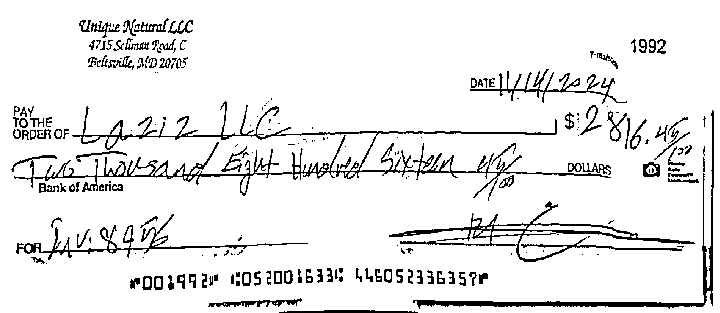 Unique Natural LLC
4715 Sellman Road, C
Beltsville, MD 20705
1992
DATE 11/14/2024
PAY
TO THE
ORDER OF Laziz LLC $ 2816.45/100
Two Thousand Eight Hundred Sixteen 45/100 DOLLARS
Bank of America
FOR Inv:
⑈001992⑈ ⑆052001633⑆ 446052336357⑈